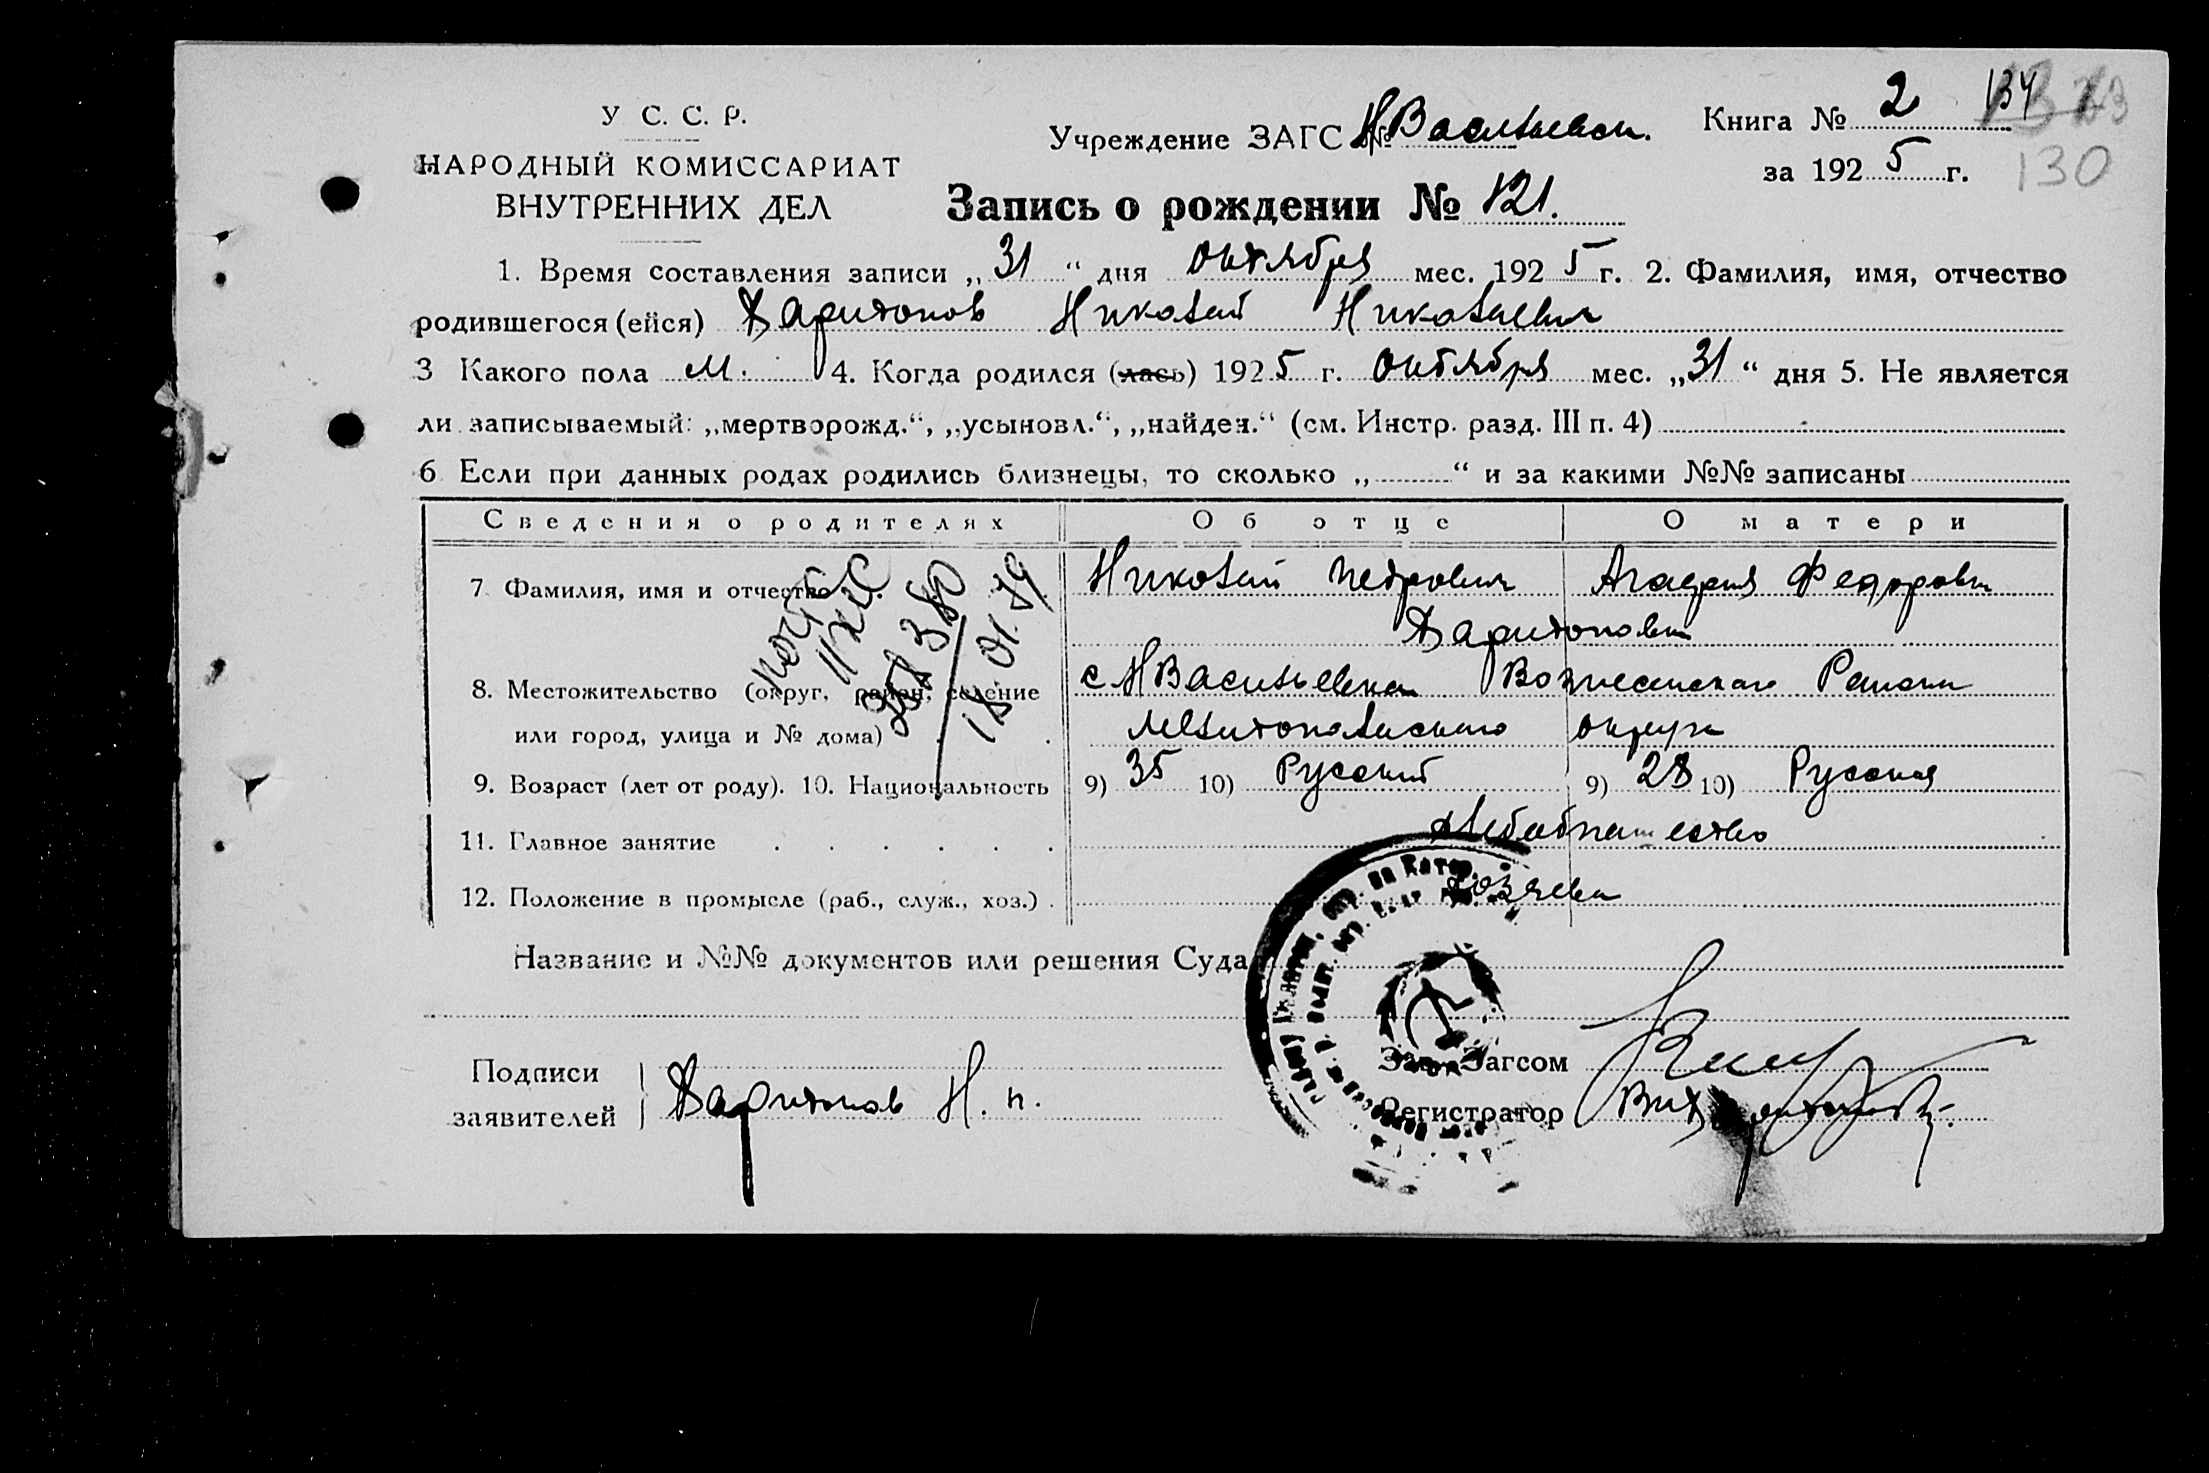 У С. С. Р.
НАРОДНЫЙ КОМИССАРИАТ
ВНУТРЕННИХ ДЕЛ
Учреждение ЗАГС № НВасильевск.
Книга № 2 134
за 1925 г. 130
Запись о рождении № 121.
1. Время составления записи „31“ дня октября мес. 1925 г. 2. Фамилия, имя, отчество
родившегося (ейся) Харитонов Николай Николаевич
3 Какого пола м. 4. Когда родился (лась) 1925 г. октября мес. „31“ дня 5. Не является
ли записываемый: „мертворожд.“, „усыновл.“, „найден.“ (см. Инстр. разд. III п. 4)
6 Если при данных родах родились близнецы, то сколько „ “ и за какими №№ записаны
Сведения о родителях Об отце О матери
7 Фамилия, имя и отчество Николай Петрович Агафия Федоровн
Харитоновы
8. Местожительство (округ, район, селение с НВасильевка Вознесенского Района
или город, улица и № дома) Мелитопольского округа
9. Возраст (лет от роду). 10. Национальность 9) 35 10) Русский 9) 28 10) Русская
380
18.01.79
11. Главное занятие Хлебопашество
12. Положение в промысле (раб., служ., хоз.) Хозяева
Название и №№ документов или решения Суда
Подписи
заявителей Харитонов Н. П.
Зав. Загсом
Регистратор